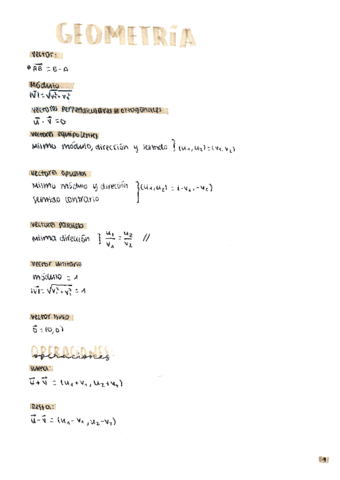 GEOMETRÍA
vector:
• AB⃗ = B - A
módulo
|v⃗| = √v₁² + v₂²
vectores perpendiculares u ortogonales
u⃗ · v⃗ = 0
vectores equipolentes
mismo módulo, dirección y sentido } (u₁, u₂) = (v₁, v₂)
vectores opuestos
mismo módulo y dirección } (u₁, u₂) = (-v₁, -v₂)
sentido contrario
vectores paralelos
misma dirección } u₁/v₁ = u₂/v₂ //
vector unitario
módulo = 1
|v⃗| = √v₁² + v₂² = 1
vector nulo
0⃗ = (0, 0)
OPERACIONES
operaciones
suma:
u⃗ + v⃗ = (u₁ + v₁, u₂ + v₂)
Resta:
u⃗ - v⃗ = (u₁ - v₁, u₂ - v₂)